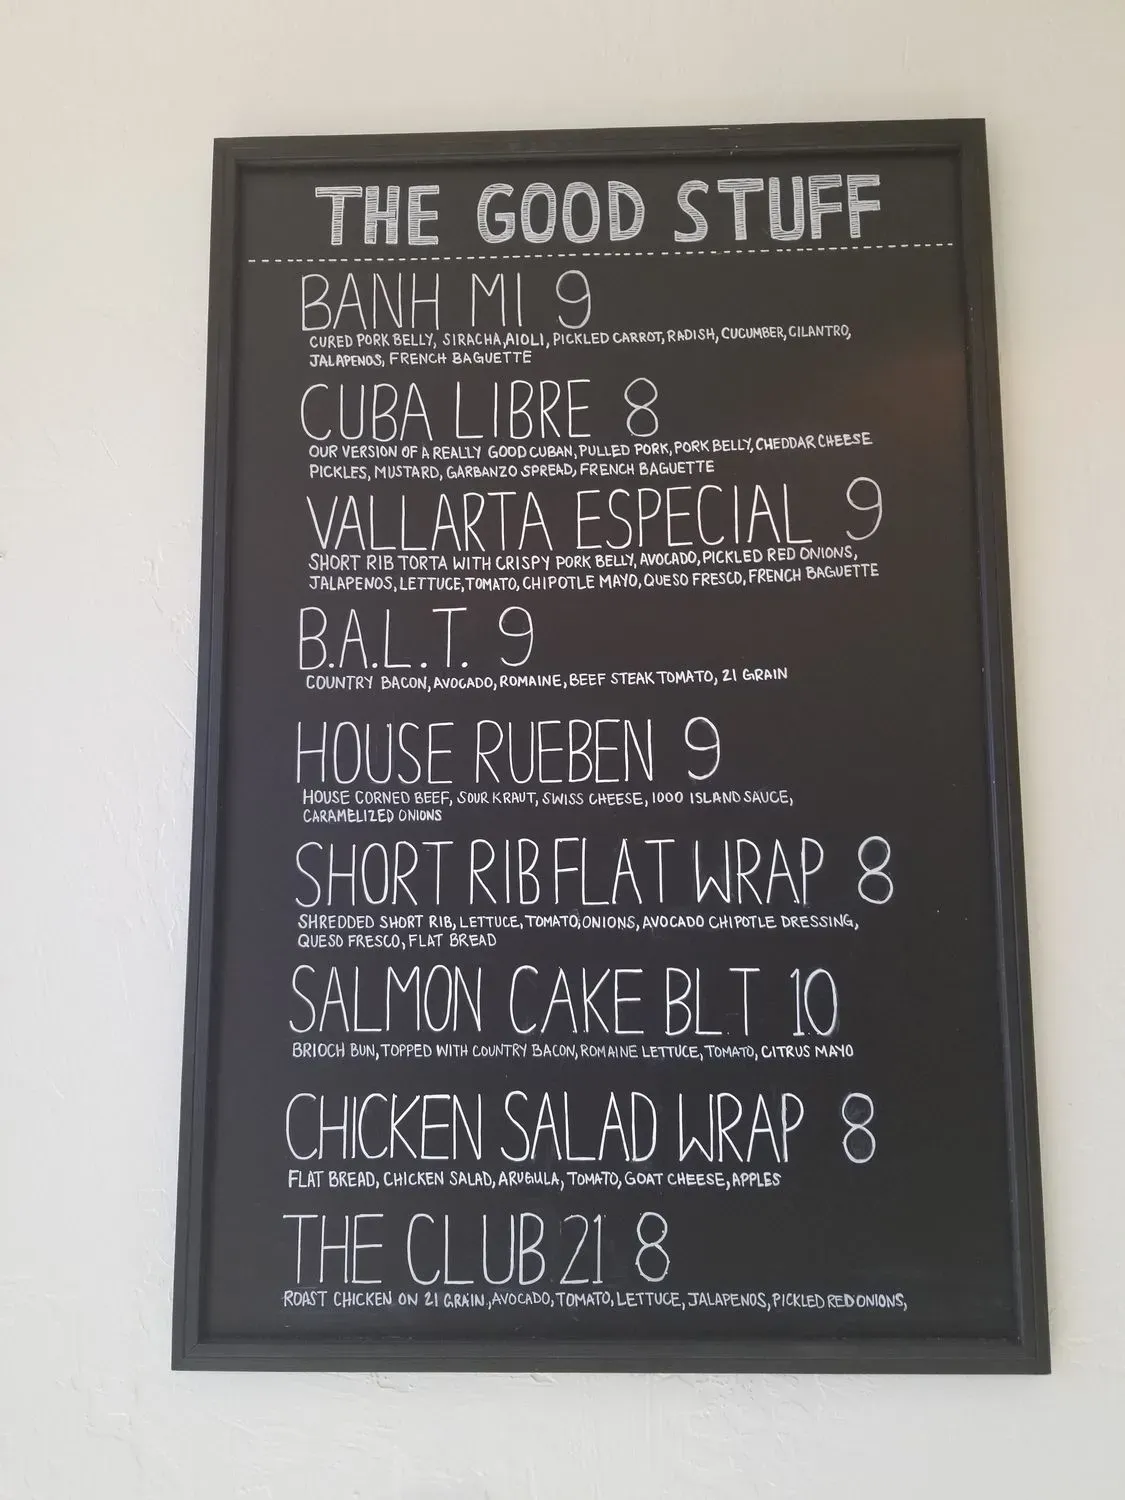 THE GOOD STUFF
BANH MI 9
CURED PORK BELLY, SIRACHA, AIOLI, PICKLED CARROT, RADISH, CUCUMBER, CILANTRO,
JALAPENOS, FRENCH BAGUETTE
CUBA LIBRE 8
OUR VERSION OF A REALLY GOOD CUBAN, PULLED PORK, PORK BELLY, CHEDDAR CHEESE
PICKLES, MUSTARD, GARBANZO SPREAD, FRENCH BAGUETTE
VALLARTA ESPECIAL 9
SHORT RIB TORTA WITH CRISPY PORK BELLY, AVOCADO, PICKLED RED ONIONS,
JALAPENOS, LETTUCE, TOMATO, CHIPOTLE MAYO, QUESO FRESCO, FRENCH BAGUETTE
B.A.L.T. 9
COUNTRY BACON, AVOCADO, ROMAINE, BEEF STEAK TOMATO, 21 GRAIN
HOUSE RUEBEN 9
HOUSE CORNED BEEF, SOUR KRAUT, SWISS CHEESE, 1000 ISLAND SAUCE,
CARAMELIZED ONIONS
SHORT RIB FLAT WRAP 8
SHREDDED SHORT RIB, LETTUCE, TOMATO, ONIONS, AVOCADO CHIPOTLE DRESSING,
QUESO FRESCO, FLAT BREAD
SALMON CAKE BL.T 10
BRIOCH BUN, TOPPED WITH COUNTRY BACON, ROMAINE LETTUCE, TOMATO, CITRUS MAYO
CHICKEN SALAD WRAP 8
FLAT BREAD, CHICKEN SALAD, ARUGULA, TOMATO, GOAT CHEESE, APPLES
THE CLUB 21 8
ROAST CHICKEN ON 21 GRAIN., AVOCADO, TOMATO, LETTUCE, JALAPENOS, PICKLED RED ONIONS,